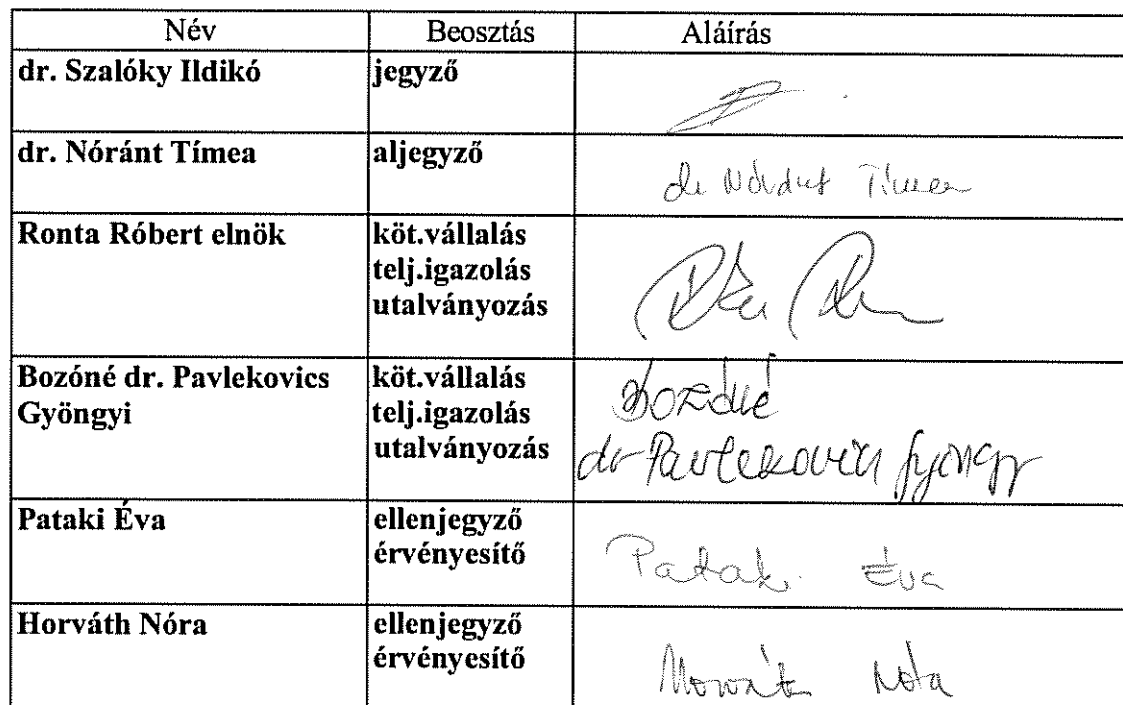 Név Beosztás Aláírás
dr. Szalóky Ildikó jegyző
dr. Nóránt Tímea aljegyző
dr Nóránt Tímea
Ronta Róbert elnök köt.vállalás
telj.igazolás
utalványozás
Bozóné dr. Pavlekovics köt.vállalás
Gyöngyi telj.igazolás
utalványozás
Bozóné
dr Pavlekovics Gyöngyi
Pataki Éva ellenjegyző
érvényesítő
Pataki Éva
Horváth Nóra ellenjegyző
érvényesítő
Horváth Nóra